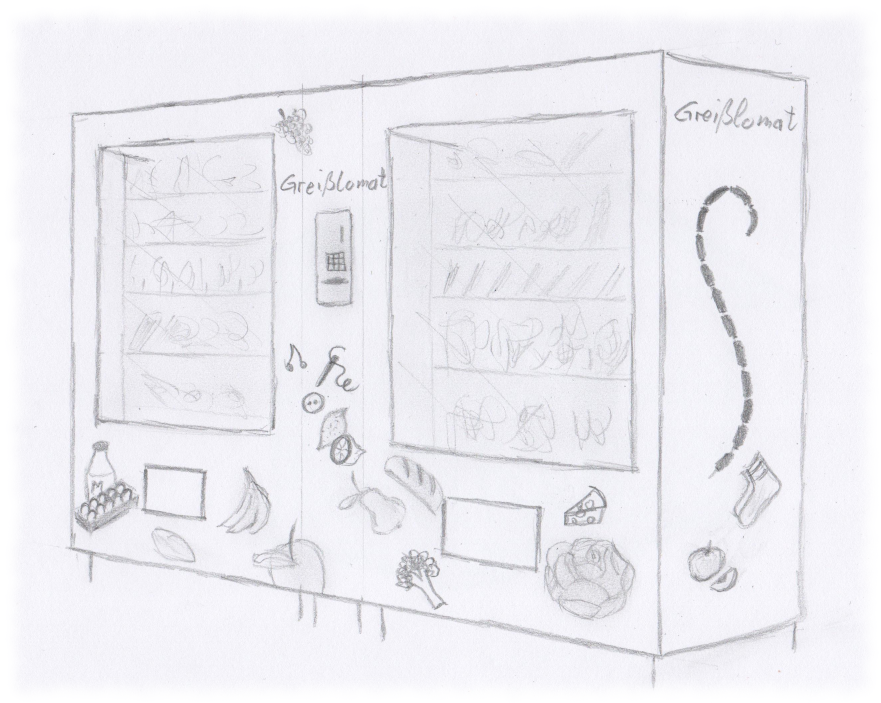 Greißlomat
Greißlomat
M